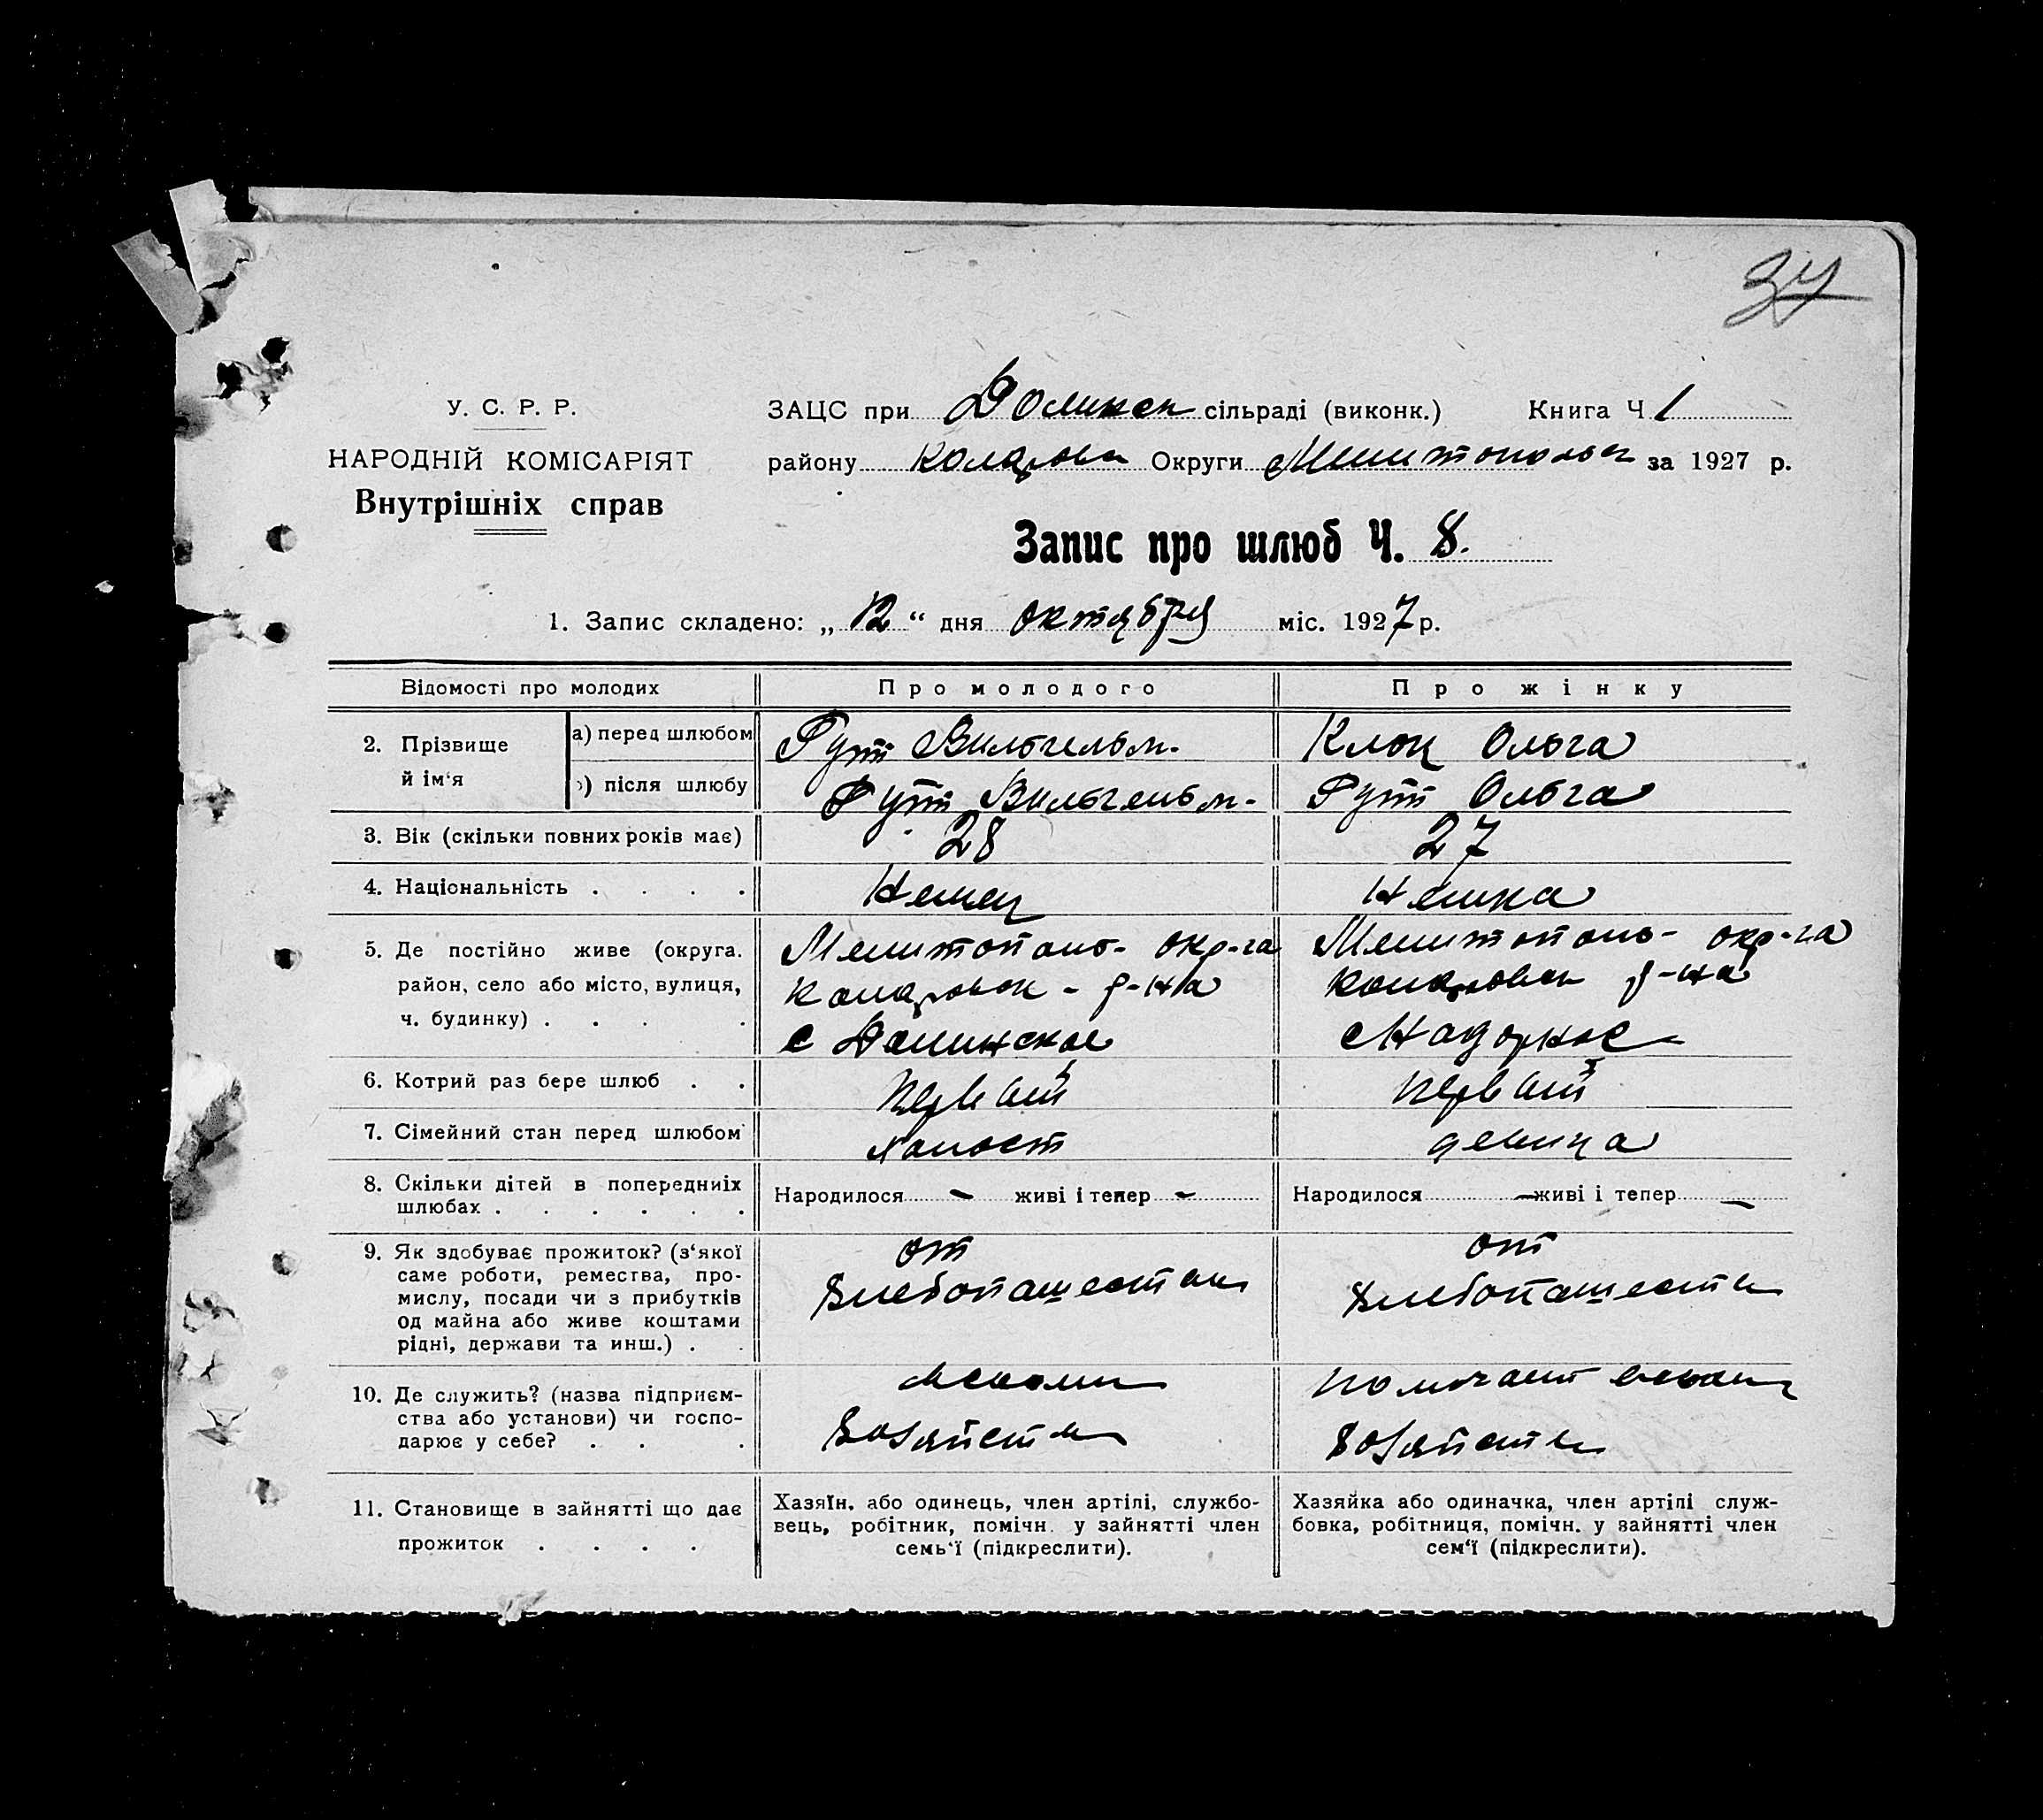 34
У. С. Р. Р.
НАРОДНІЙ КОМІСАРІЯТ
Внутрішніх справ
ЗАЦС при Долинск сільраді (виконк.) Книга Ч 1
району Коларовск Округи Мелитопольск за 1927 р.
Запис про шлюб Ч. 8.
1. Запис складено: „ 12 “ дня октября міс. 1927 р.
Відомості про молодих Про молодого Про жінку
2. Прізвище й ім‘я а) перед шлюбом Рутт Вильгельм. Клок Ольга
) після шлюбу Рутт Вильгельм. Рутт Ольга
3. Вік (скільки повних років має) 28 27
4. Національність . . . . Немец Немка
5. Де постійно живе (округа. Мелитополь- окр-га Мелитополь- окр-га
район, село або місто, вулиця, Коларовск - р-на Коларовск р-на
ч. будинку) . . . . с Долинское с Надорное
6. Котрий раз бере шлюб . . первый первый
7. Сімейний стан перед шлюбом холост девица
8. Скільки дітей в попередніх Народилося - живі і тепер - Народилося - живі і тепер -
шлюбах . . . . . .
9. Як здобуває прожиток? (з‘якої от от
саме роботи, ремества, про- хлебопашества хлебопашества
мислу, посади чи з прибутків
од майна або живе коштами
рідні, держави та инш.) . .
10. Де служить? (назва підприєм- в своем помогает в своем
ства або установи) чи госпо- хозяйстве хозяйстве
дарює у себе? . . .
11. Становище в зайнятті що дає Хазяїн. або одинець, член артілі, службо- Хазяйка або одиначка, член артілі служ-
прожиток . . . . вець, робітник, помічн. у зайнятті член бовка, робітниця, помічн. у зайнятті член
семь‘ї (підкреслити). сем‘ї (підкреслити).